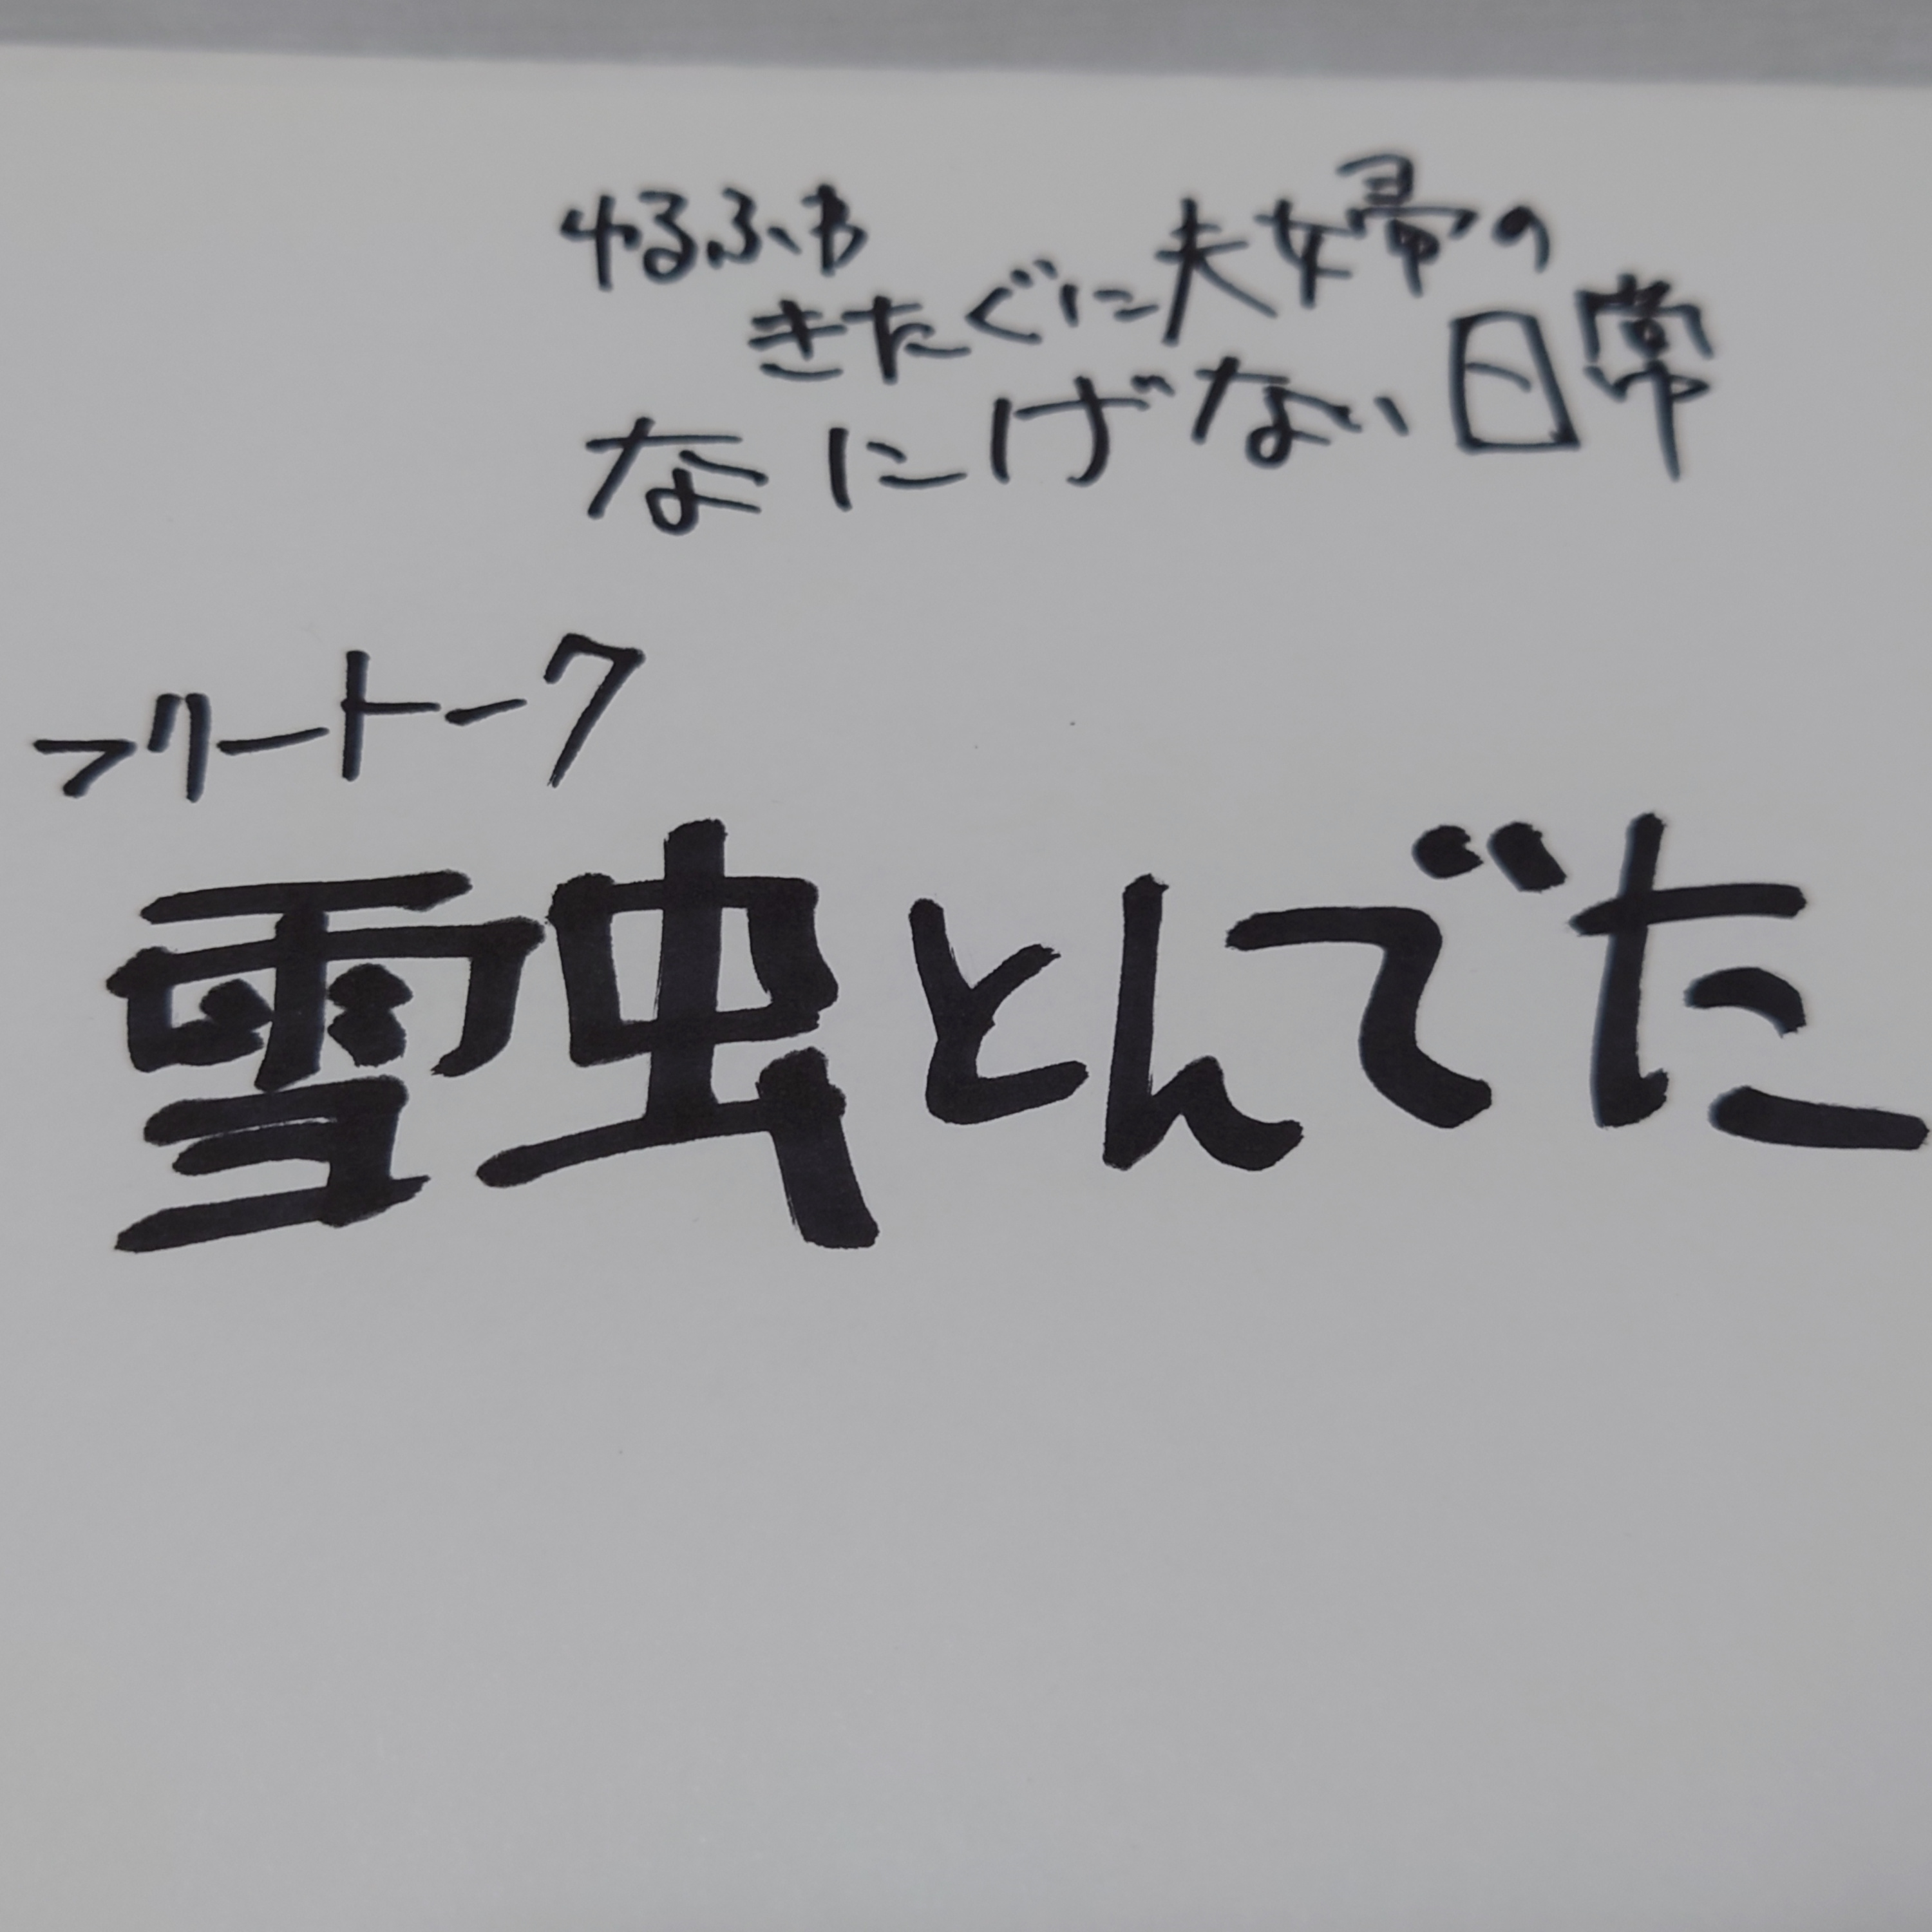 ゆるふわ
きたぐに夫婦の
なにげない日常
フリートーク
雪虫とんでた